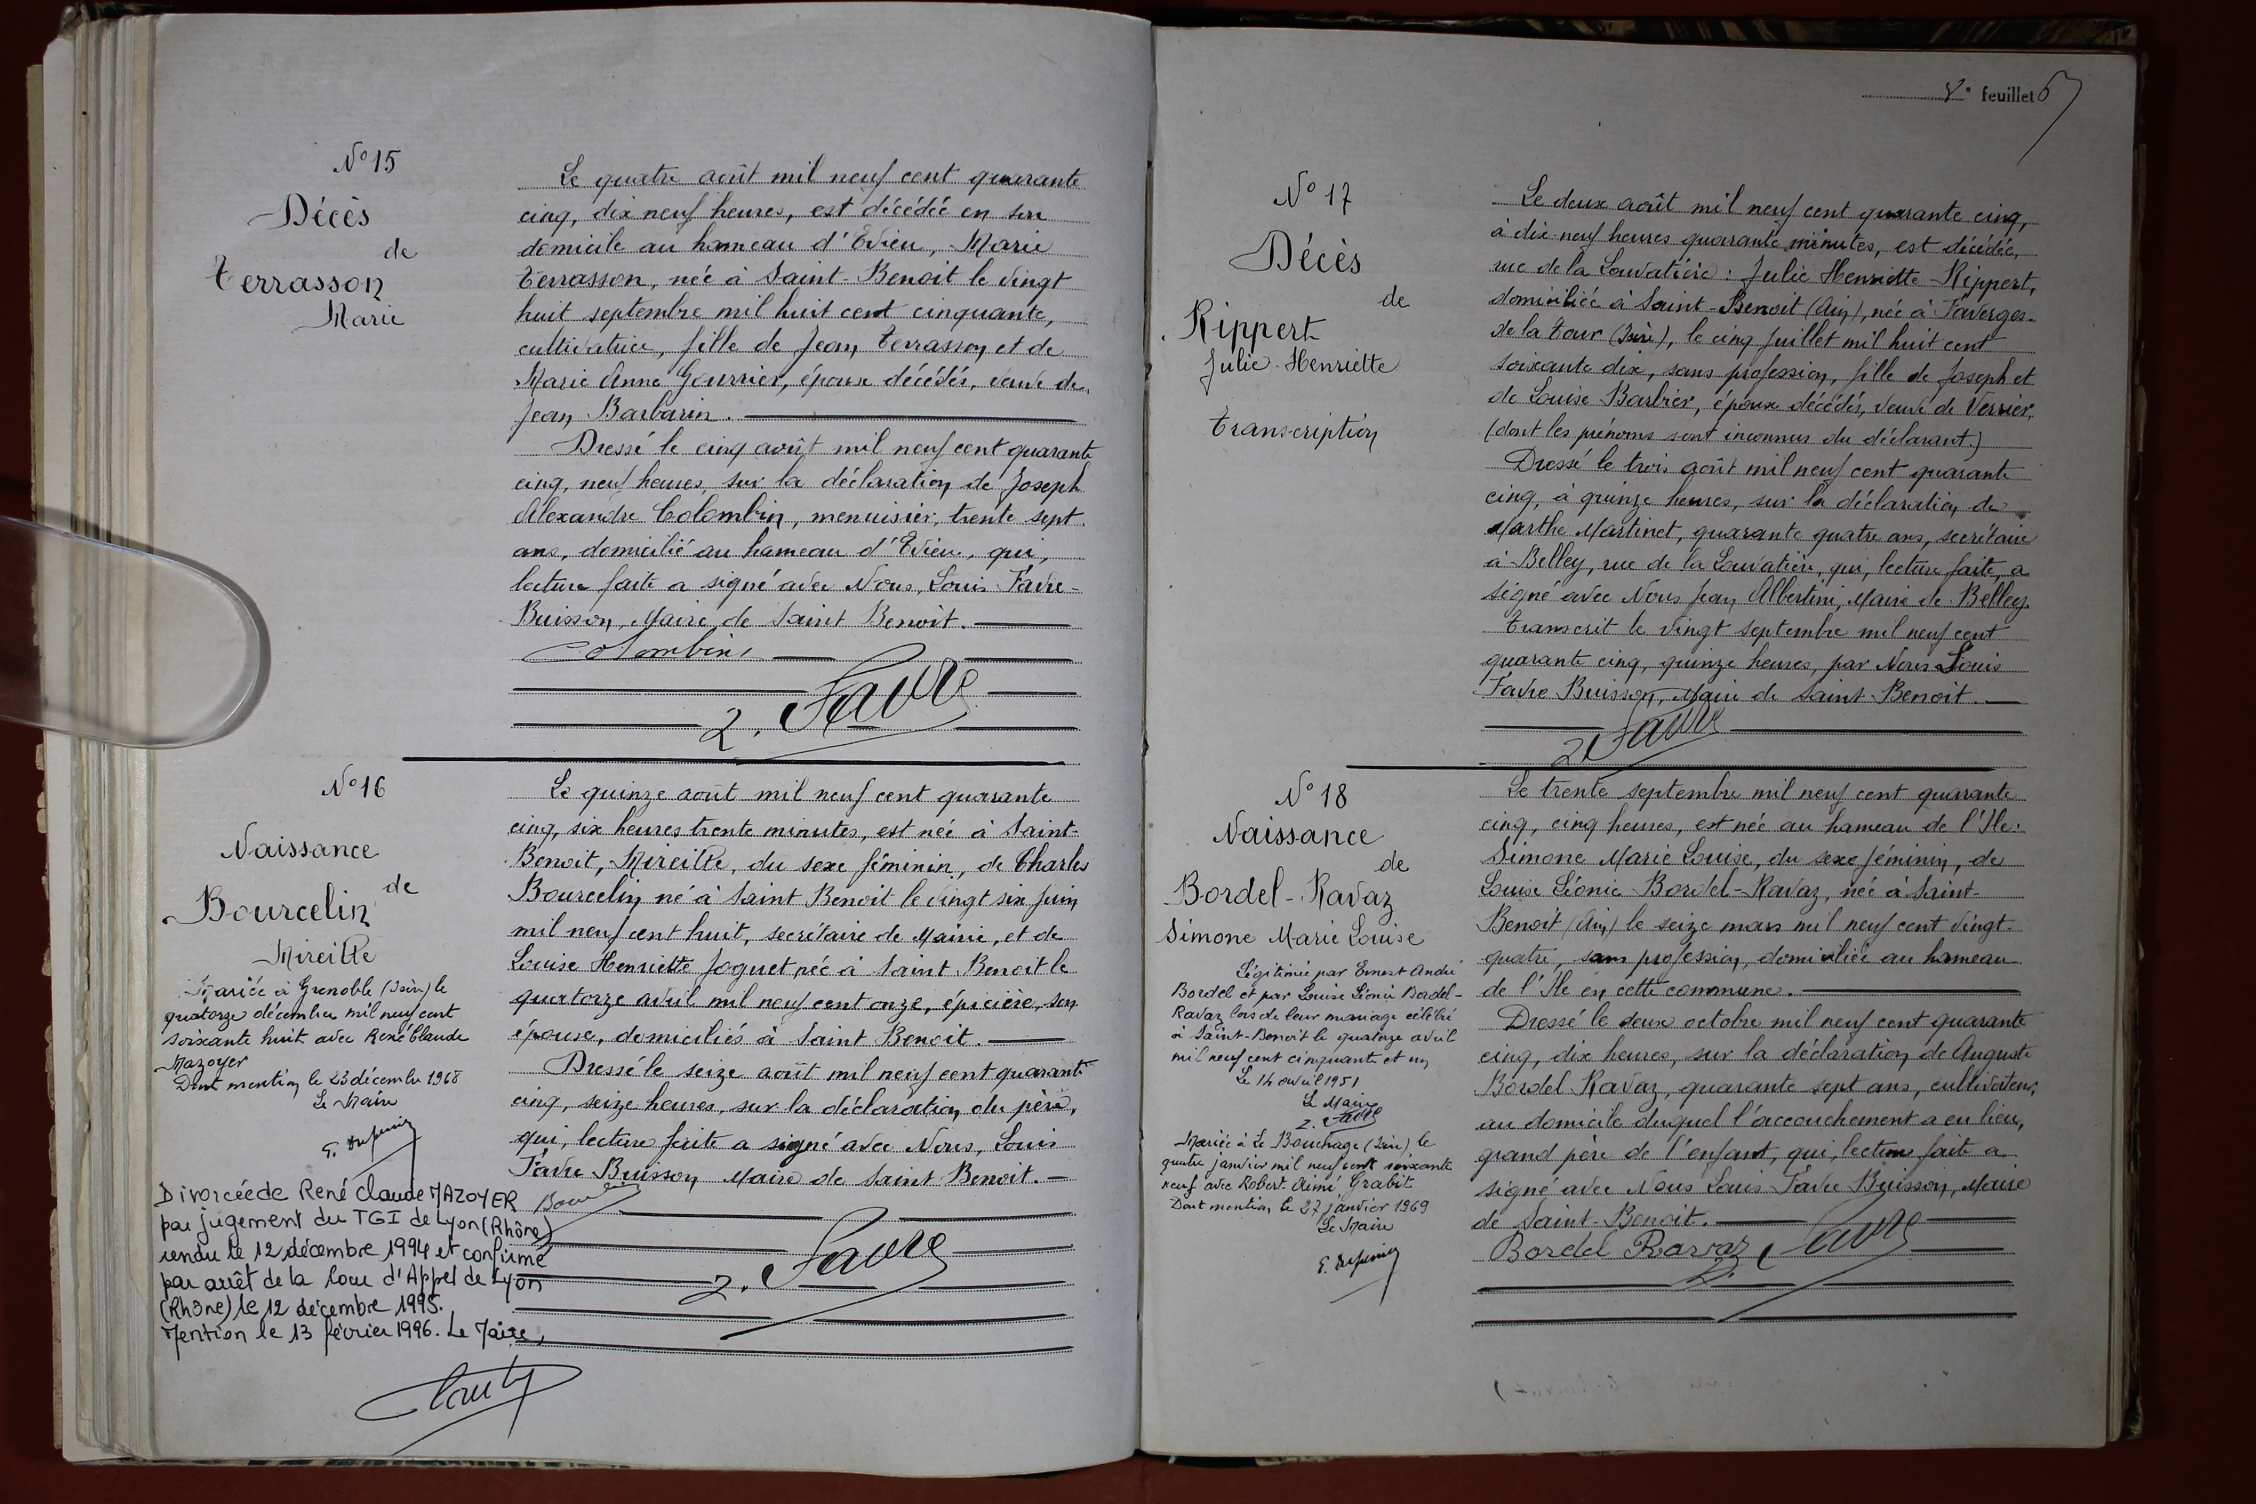 N° 15
Décès
de
Terrasson
Marie
Le quatre août mil neuf cent quarante
cinq, dix neuf heures, est décédée en son
domicile au hameau d'Evieu, Marie
Terrasson, née à Saint-Benoit le vingt
huit septembre mil huit cent cinquante,
cultivatrice, fille de Jean Terrasson et de
Marie Anne Gourrier, époux décédés, veuve de
Jean Barbarin.
Dressé le cinq août mil neuf cent quarante
cinq, neuf heures, sur la déclaration de Joseph
Alexandre Colombin, menuisier, trente sept
ans, domicilié au hameau d'Evieu, qui,
lecture faite a signé avec Nous, Louis Favre-
Buisson, Maire de Saint Benoit.
Colombin
L. Favre
N° 16
Naissance
de
Bourcelin
Mireille
Mariée à Grenoble (Isère) le
quatorze décembre mil neuf cent
soixante huit avec René Claude
Mazoyer
Dont mention le 23 décembre 1968
Le Maire
Divorcée de René Claude MAZOYER
par jugement du TGI de Lyon (Rhône)
rendu le 12 décembre 1994 et confirmé
par arrêt de la Cour d'Appel de Lyon
(Rhône) le 12 décembre 1995.
Mention le 13 février 1996. Le Maire,
Le quinze août mil neuf cent quarante
cinq, six heures trente minutes, est née à Saint-
Benoit, Mireille, du sexe féminin, de Charles
Bourcelin né à Saint Benoit le vingt six juin
mil neuf cent huit, secrétaire de Mairie, et de
Louise Henriette Joguet née à Saint Benoit le
quatorze avril mil neuf cent onze, épicière, son
épouse, domiciliés à Saint Benoit.
Dressé le seize août mil neuf cent quarante
cinq, seize heures, sur la déclaration du père,
qui, lecture faite a signé avec Nous, Louis
Favre Buisson Maire de Saint Benoit.
L. Favre
8e feuillet 67
N° 17
Décès
de
Rippert
Julie-Henriette
Transcription
Le deux août mil neuf cent quarante cinq,
à dix-neuf heures quarante minutes, est décédée,
rue de la Louvatière : Julie Henriette Rippert,
domiciliée à Saint-Benoit (Ain), née à Faverges-
de la Tour (Isère), le cinq juillet mil huit cent
soixante dix, sans profession, fille de Joseph et
de Louise Barbier, époux décédés, veuve de Verrier,
(dont les prénoms sont inconnus du déclarant.)
Dressé le trois août mil neuf cent quarante
cinq, à quinze heures, sur la déclaration de
Marthe Martinet, quarante quatre ans, secrétaire
à Belley, rue de la Louvatière, qui, lecture faite, a
signé avec Nous Jean Albertini, Maire de Belley.
Transcrit le vingt septembre mil neuf cent
quarante cinq, quinze heures, par Nous Louis
Favre Buisson, Maire de Saint-Benoit.
L. Favre
N° 18
Naissance
de
Bordel-Ravaz
Simone Marie Louise
Légitimée par Ernest André
Bordel et par Louise Léonie Bordel-
Ravaz lors de leur mariage célébré
à Saint-Benoit le quatorze avril
mil neuf cent cinquante et un
Le 14 avril 1951
Le Maire
L. Favre
Mariée à Le Bouchage (Isère) le
quatre janvier mil neuf cent soixante
neuf avec Robert Aimé Grabit
Dont mention le 27 janvier 1969
Le Maire
Le trente septembre mil neuf cent quarante
cinq, cinq heures, est née au hameau de l'Ile :
Simone Marie Louise, du sexe féminin, de
Louise Léonie Bordel-Ravaz, née à Saint-
Benoit (Ain) le seize mars mil neuf cent vingt-
quatre, sans profession, domiciliée au hameau
de l'Ile en cette commune.
Dressé le deux octobre mil neuf cent quarante
cinq, dix heures, sur la déclaration de Auguste
Bordel Ravaz, quarante sept ans, cultivateur,
au domicile duquel l'accouchement a eu lieu,
grand père de l'enfant, qui, lecture faite a
signé avec Nous Louis Favre Buisson, Maire
de Saint-Benoit.
Bordel Ravaz L. Favre